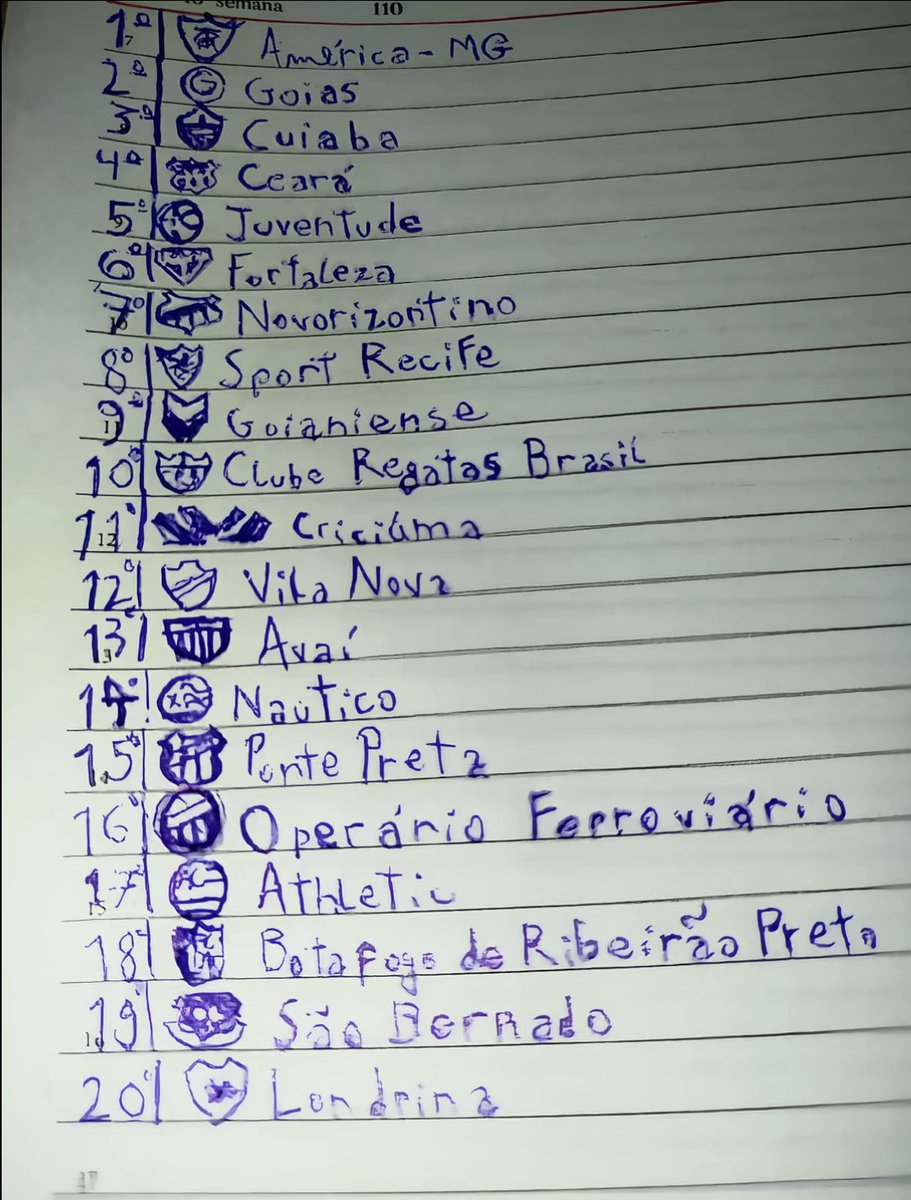 semana 110
1º América-MG
2º G Goias
3º Cuiaba
4º Ceará
5º Juventude
6º Fortaleza
7º Novorizontino
8º Sport Recife
9º Goianiense
10º Clube Regatas Brasil
11º Criciúma
12º Vila Nova
13º Avaí
14º Naútico
15º Ponte Preta
16º Operário Ferroviário
17º Athletic
18º Botafogo de Ribeirão Preto
19º São Bernado
20º Londrina
17